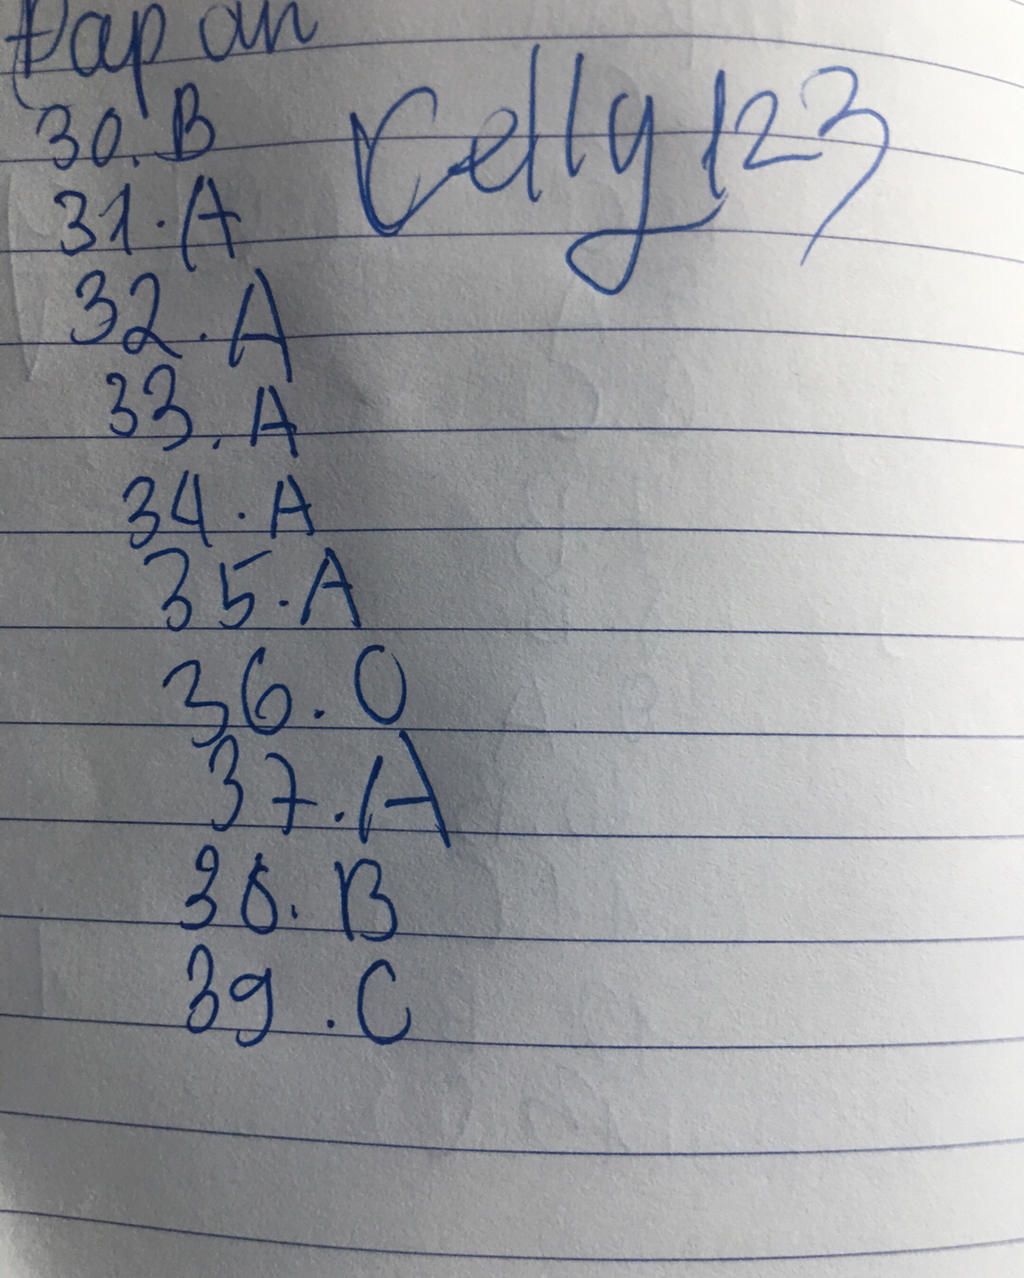 Đap an
Celly 123
30. B
31. A
32. A
33. A
34. A
35. A
36. O
37. A
38. B
39. C